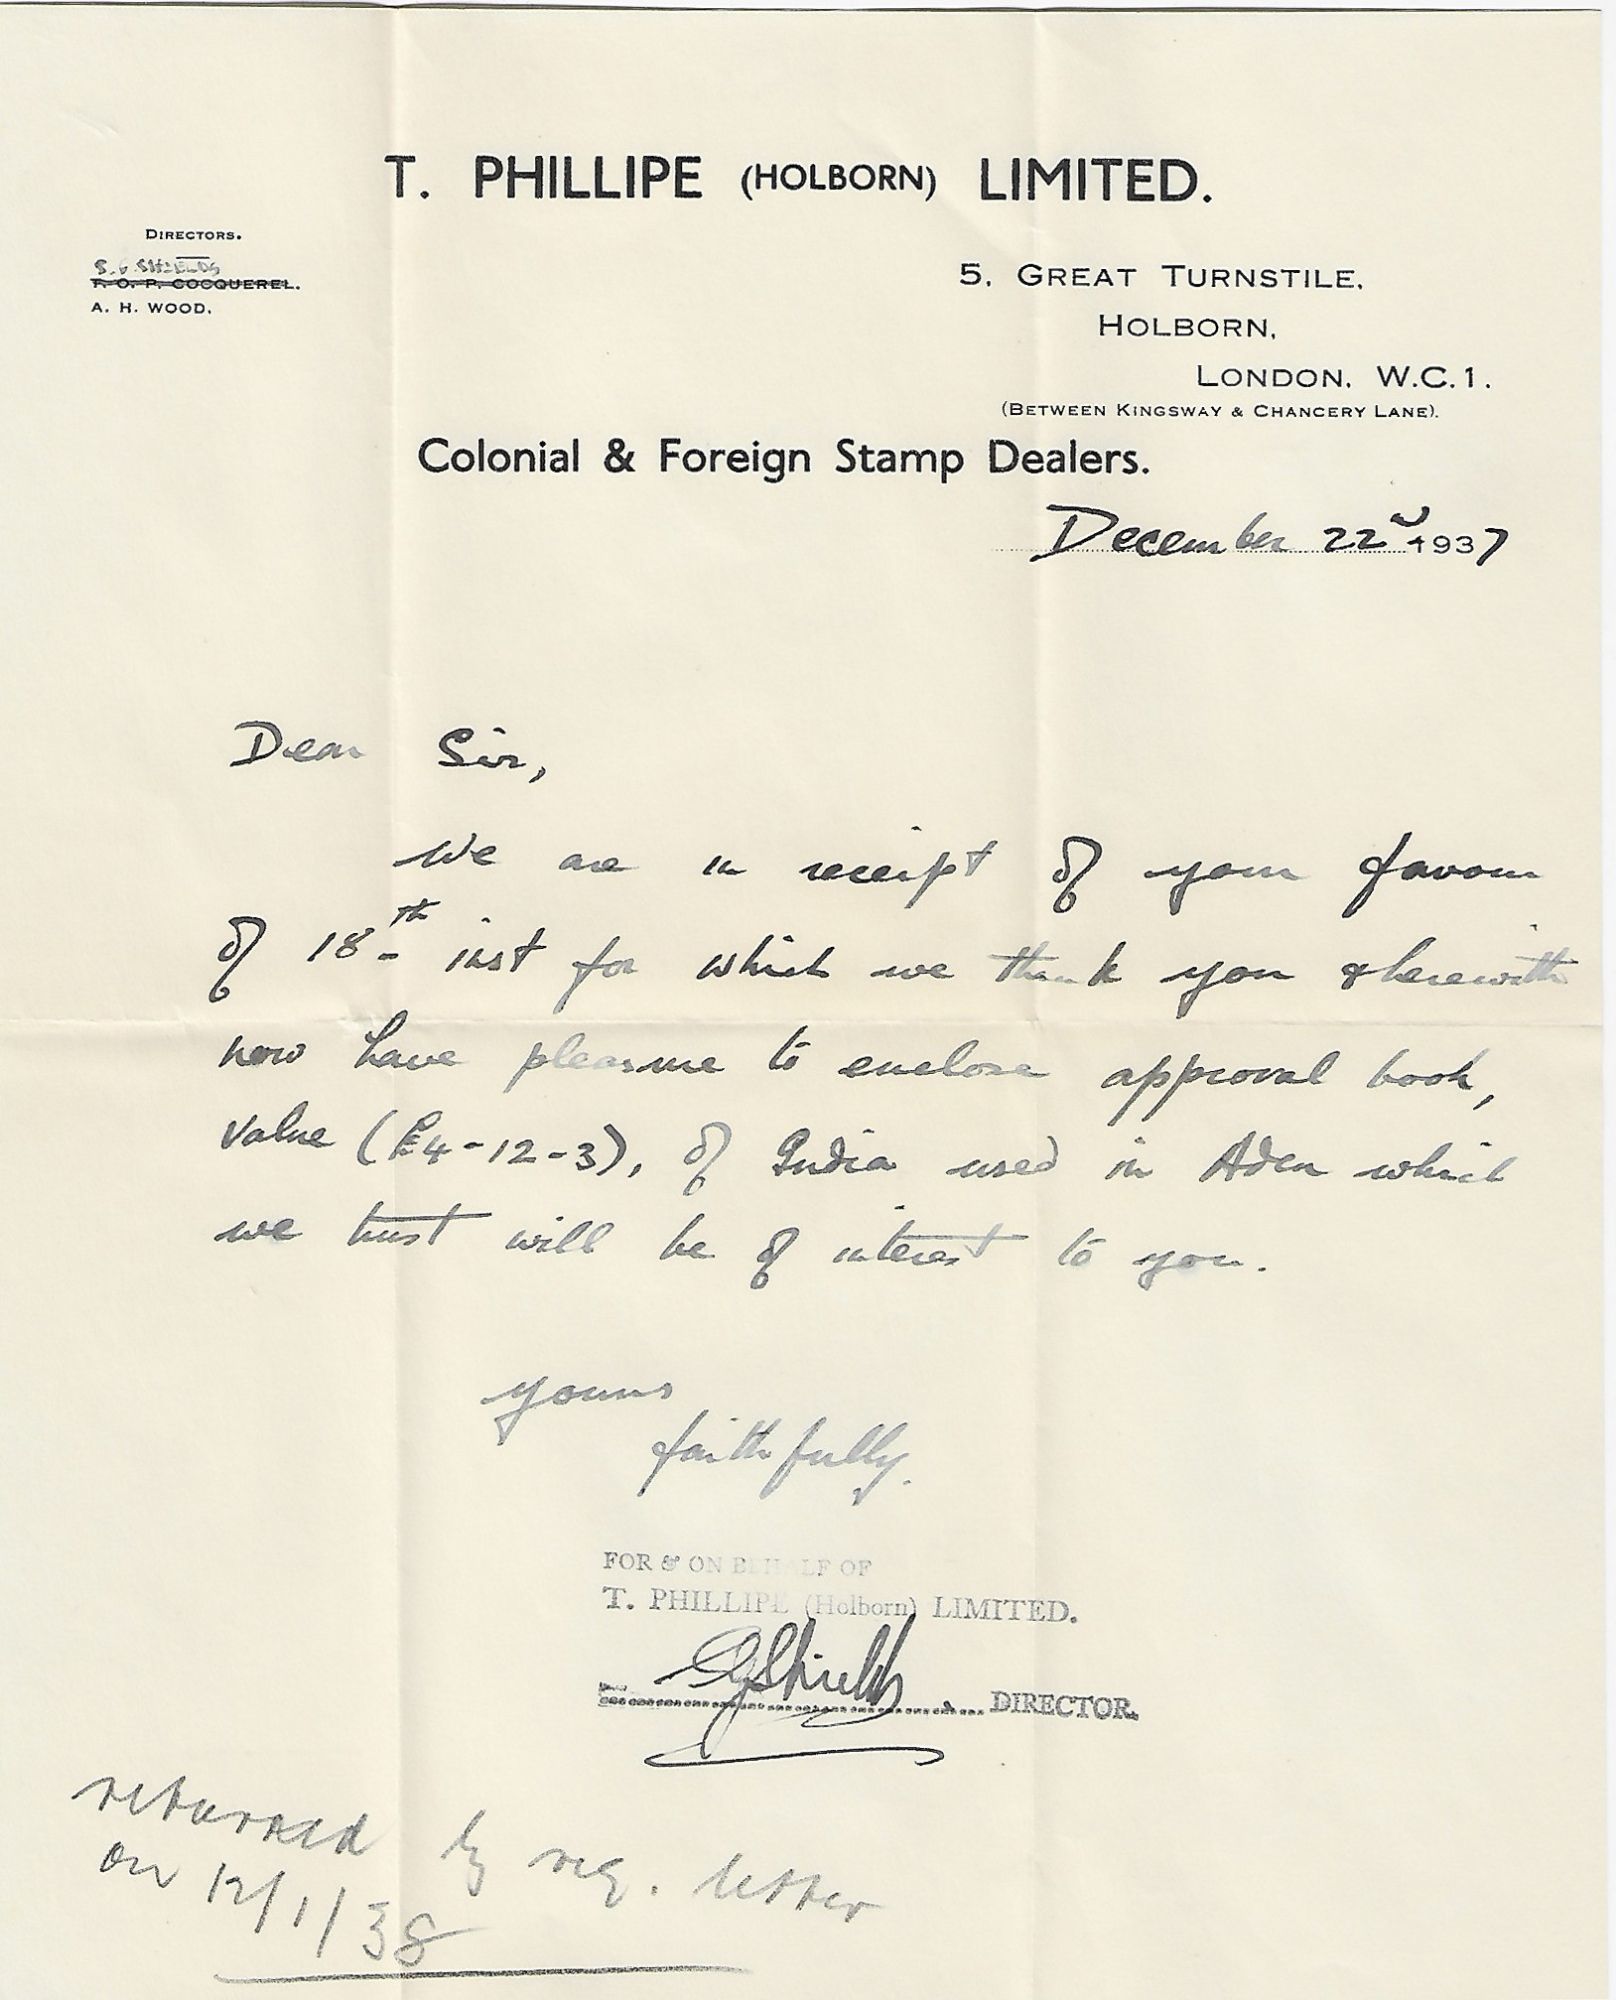 T. PHILLIPE (HOLBORN) LIMITED.
DIRECTORS.
S. G. SHIELDS
F. O. P. COCQUEREL.
A. H. WOOD.
5, GREAT TURNSTILE,
HOLBORN,
LONDON, W.C.1.
(BETWEEN KINGSWAY & CHANCERY LANE).
Colonial & Foreign Stamp Dealers.
December 22nd 1937
Dear Sir,
We are in receipt of your favour
of 18th inst for which we thank you & herewith
now have pleasure to enclose approval book,
value (£4-12-3), of India used in Aden which
we trust will be of interest to you.
yours
faithfully.
FOR & ON BEHALF OF
T. PHILLIPE (Holborn) LIMITED.
SGShields DIRECTOR.
returned by reg. letter
on 12/1/38